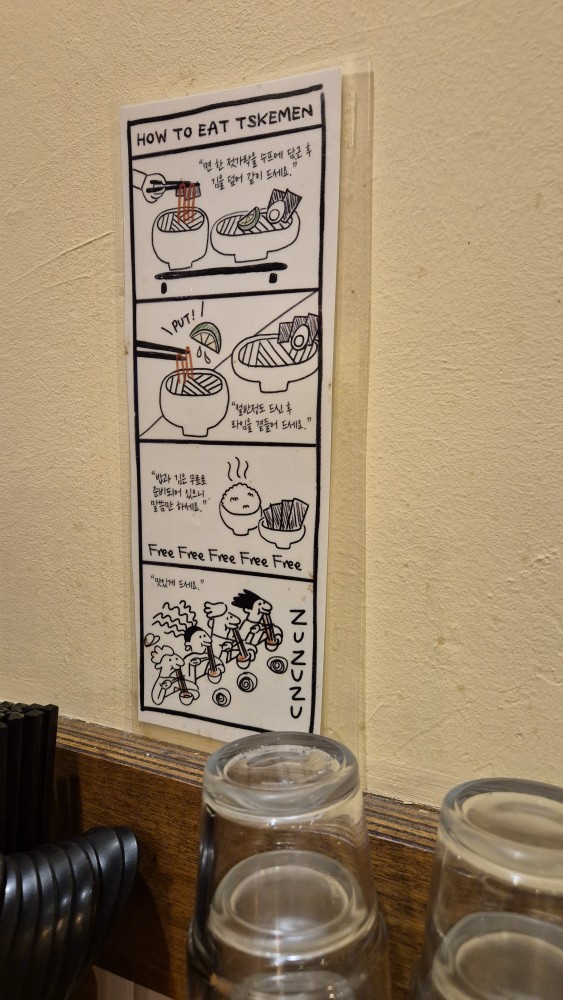 HOW TO EAT TSKEMEN
"면 한 젓가락을 수프에 담근 후
김을 덮어 같이 드세요."
PUT!
"절반정도 드신 후
라임을 곁들여 드세요."
"밥과 김은 무료로
준비되어 있으니
말씀만 하세요."
Free Free Free Free Free
"맛있게 드세요."
ZUZUZU